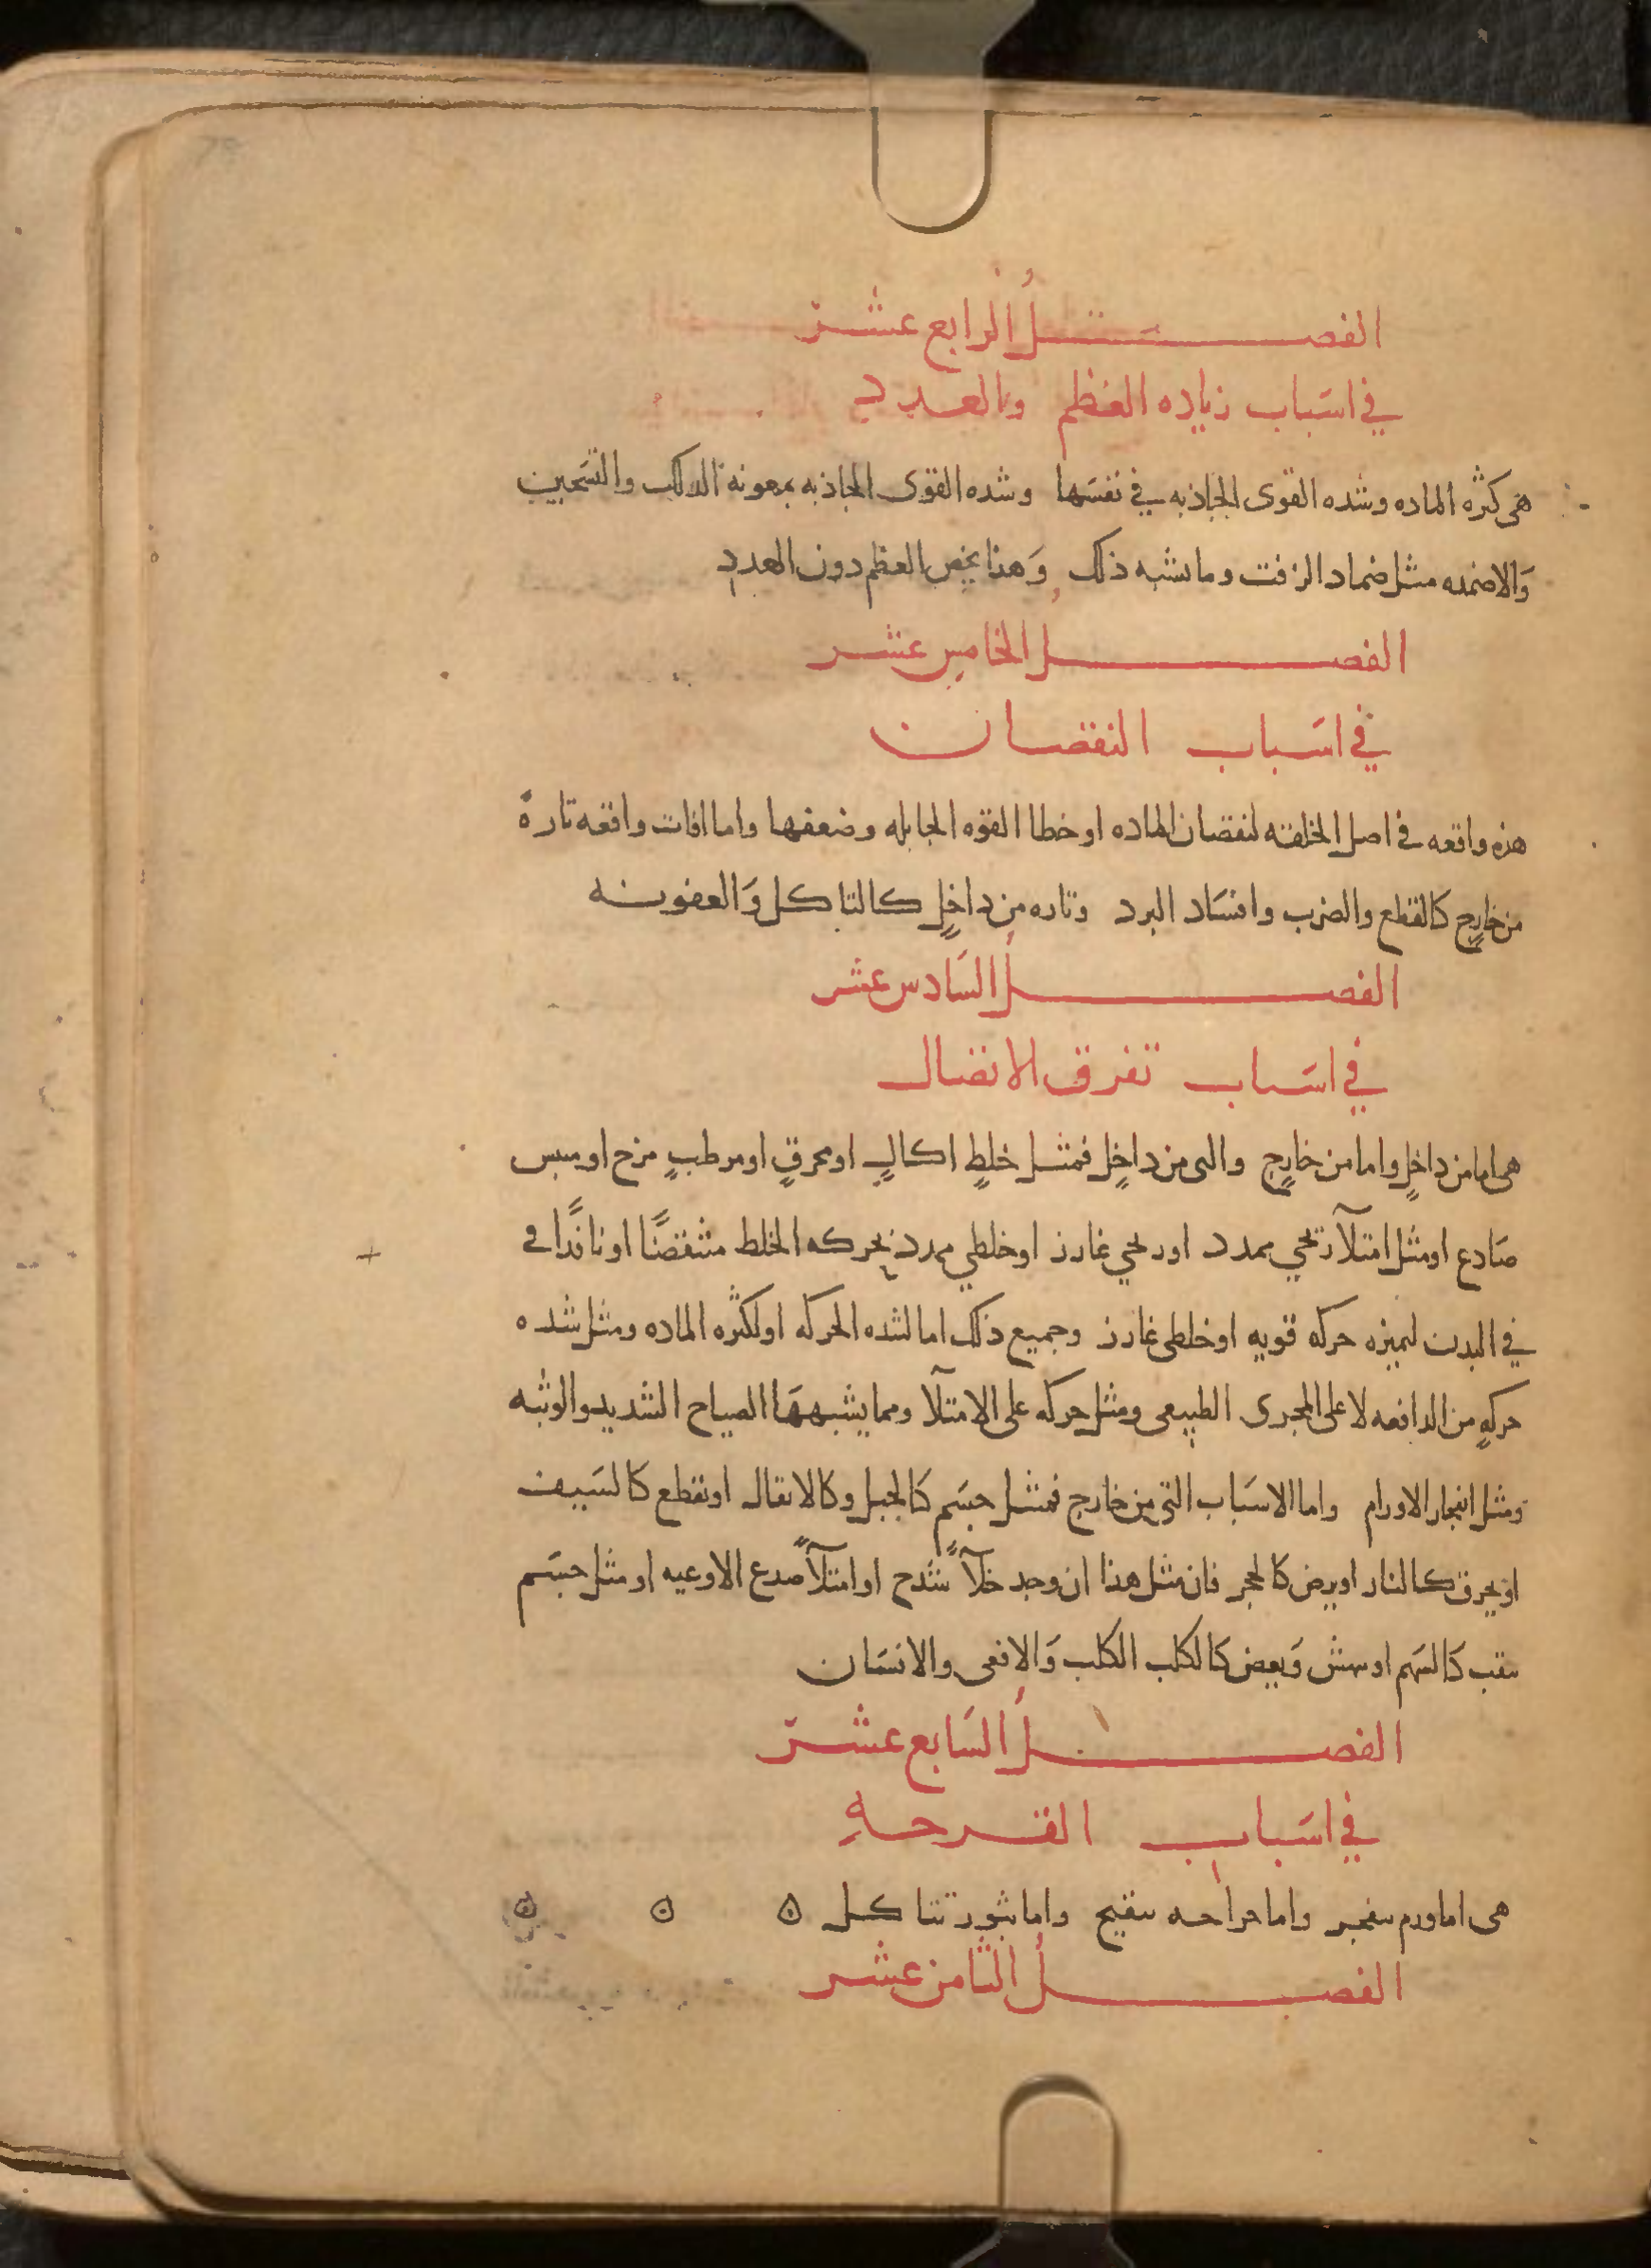 الفصل الرابع عشر
في اسباب زياده العظم والعدد
هي كثره الماده وشده القوى الجاذبه في نفسها وشده القوى الجاذبه بمعونه الدلك والتسخين
والاضمده مثل ضماد الزفت وما يشبه ذلك وهذا يخص العظم دون العدد
الفصل الخامس عشر
في اسباب النقصان
هذه واقعه في اصل الخلقه لنقصان الماده او خطا القوه الجابله وضعفها واما افات واقعه تارة
من خارج كالقطع والضرب وافساد البرد وتاره من داخل كالتاكل والعفونه
الفصل السادس عشر
في اسباب تفرق الاتصال
هي اما من داخل واما من خارج والتي من داخل فمثل خلط اكال او محرق او مرطب مرخ او ميبس
صادع او مثل امتلآ ريحي ممدد او ريحي غارز او خلطي ممدد بحركه الخلط منتفضًا او نافدًا في
في البدن لتميزه حركه قويه او خلطي غارز وجميع ذلك اما لشده الحركه او لكثره الماده ومثل شده
حركه من الدافعه لا على المجرى الطبيعي ومثل حركه على الامتلآ ومما يشبهها الصياح الشديد والوثبه
ومثل انفجار الاورام واما الاسباب التي من خارج فمثل جسم كالجبل وكالاثقال او تقطع كالسيف
او يحرق كالنار او يرض كالحجر فان مثل هذا ان وجد خلآً شدح او امتلآً صدع الاوعيه او مثل جسم
يثقب كالسهم او ينهش ويعض كالكلب الكلب والافعى والانسان
الفصل السابع عشر
في اسباب القرحه
هي اما ورم ينفجر واما جراحه يتقيح واما بثور تتاكل ۞ ۞ ۞
الفصل الثامن عشر